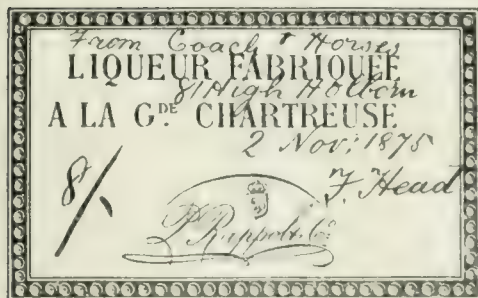 From Coach & Horses
LIQUEUR FABRIQUÉE
81 High Holborn
A LA GDE CHARTREUSE
2 Nov: 1875
8/
F. Head
Rappolt & Co